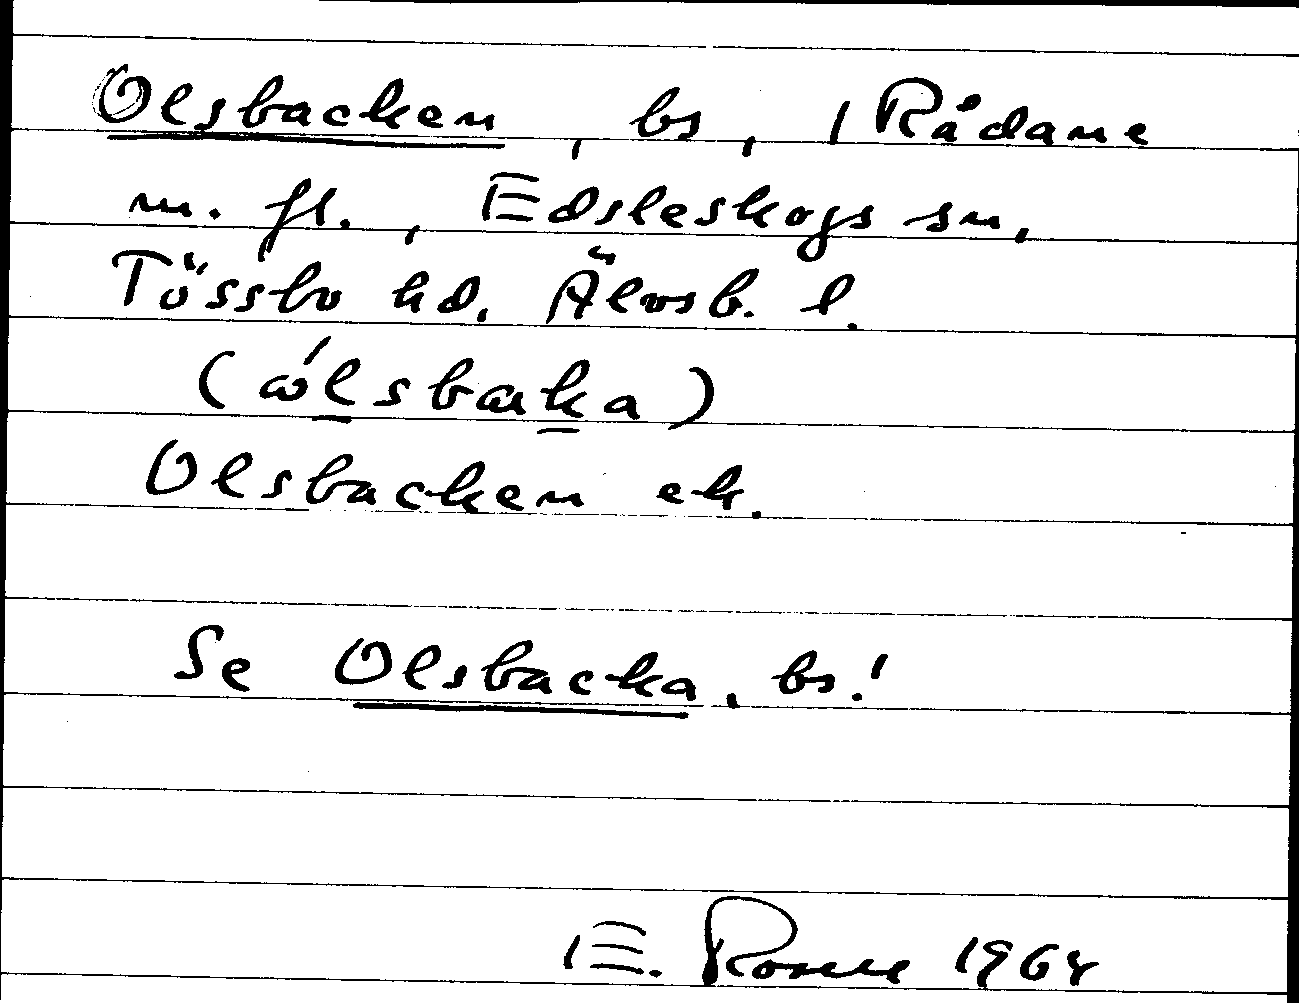 Olsbacken, bs, 1 Rådane
m. fl., Edsleskogs sn,
Tössbo hd. Älvsb. l.
(ålsbaka)
Olsbacken ek.
Se Olsbacka, bs.!
E. 1964